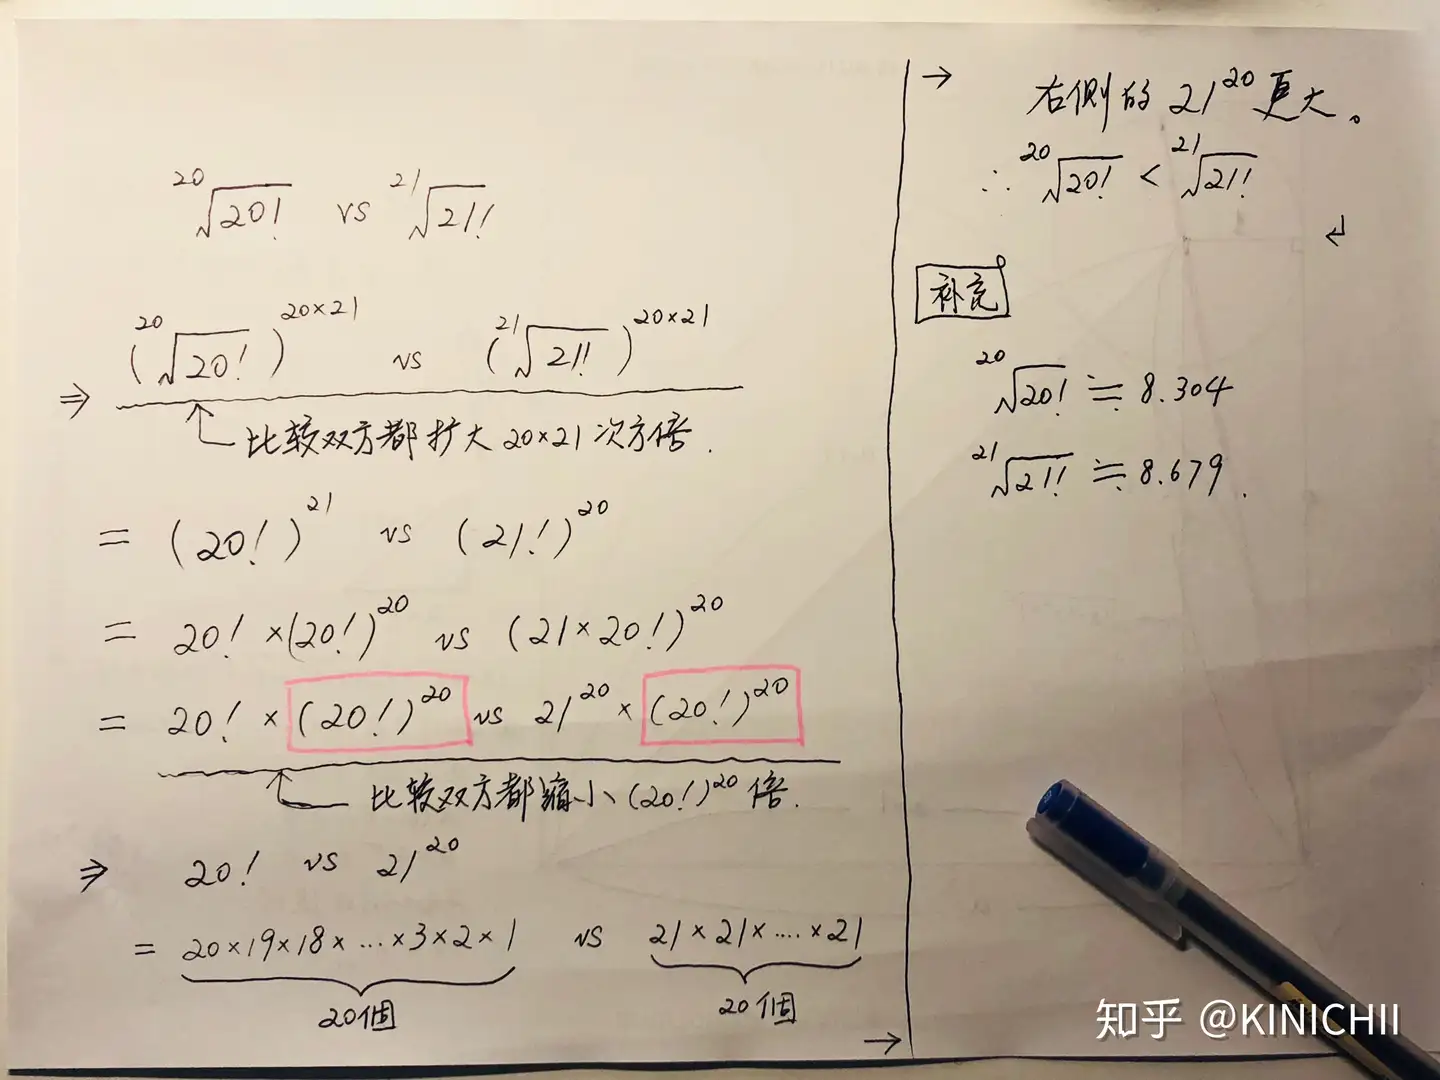 ²⁰√20! vs ²¹√21!
⇒ (²⁰√20!)^{20×21} vs (²¹√21!)^{20×21}
比较双方都扩大20×21次方倍.
= (20!)^{21} vs (21!)^{20}
= 20! × (20!)^{20} vs (21×20!)^{20}
= 20! × (20!)^{20} vs 21^{20} × (20!)^{20}
比较双方都缩小(20!)^{20}倍.
⇒ 20! vs 21^{20}
= 20×19×18×…×3×2×1 vs 21×21×....×21
20個 20個
→
→ 右側的 21^{20} 更大。
∴ ²⁰√20! < ²¹√21!
↲
补充
²⁰√20! ≒ 8.304
²¹√21! ≒ 8.679.
知乎 @KINICHII